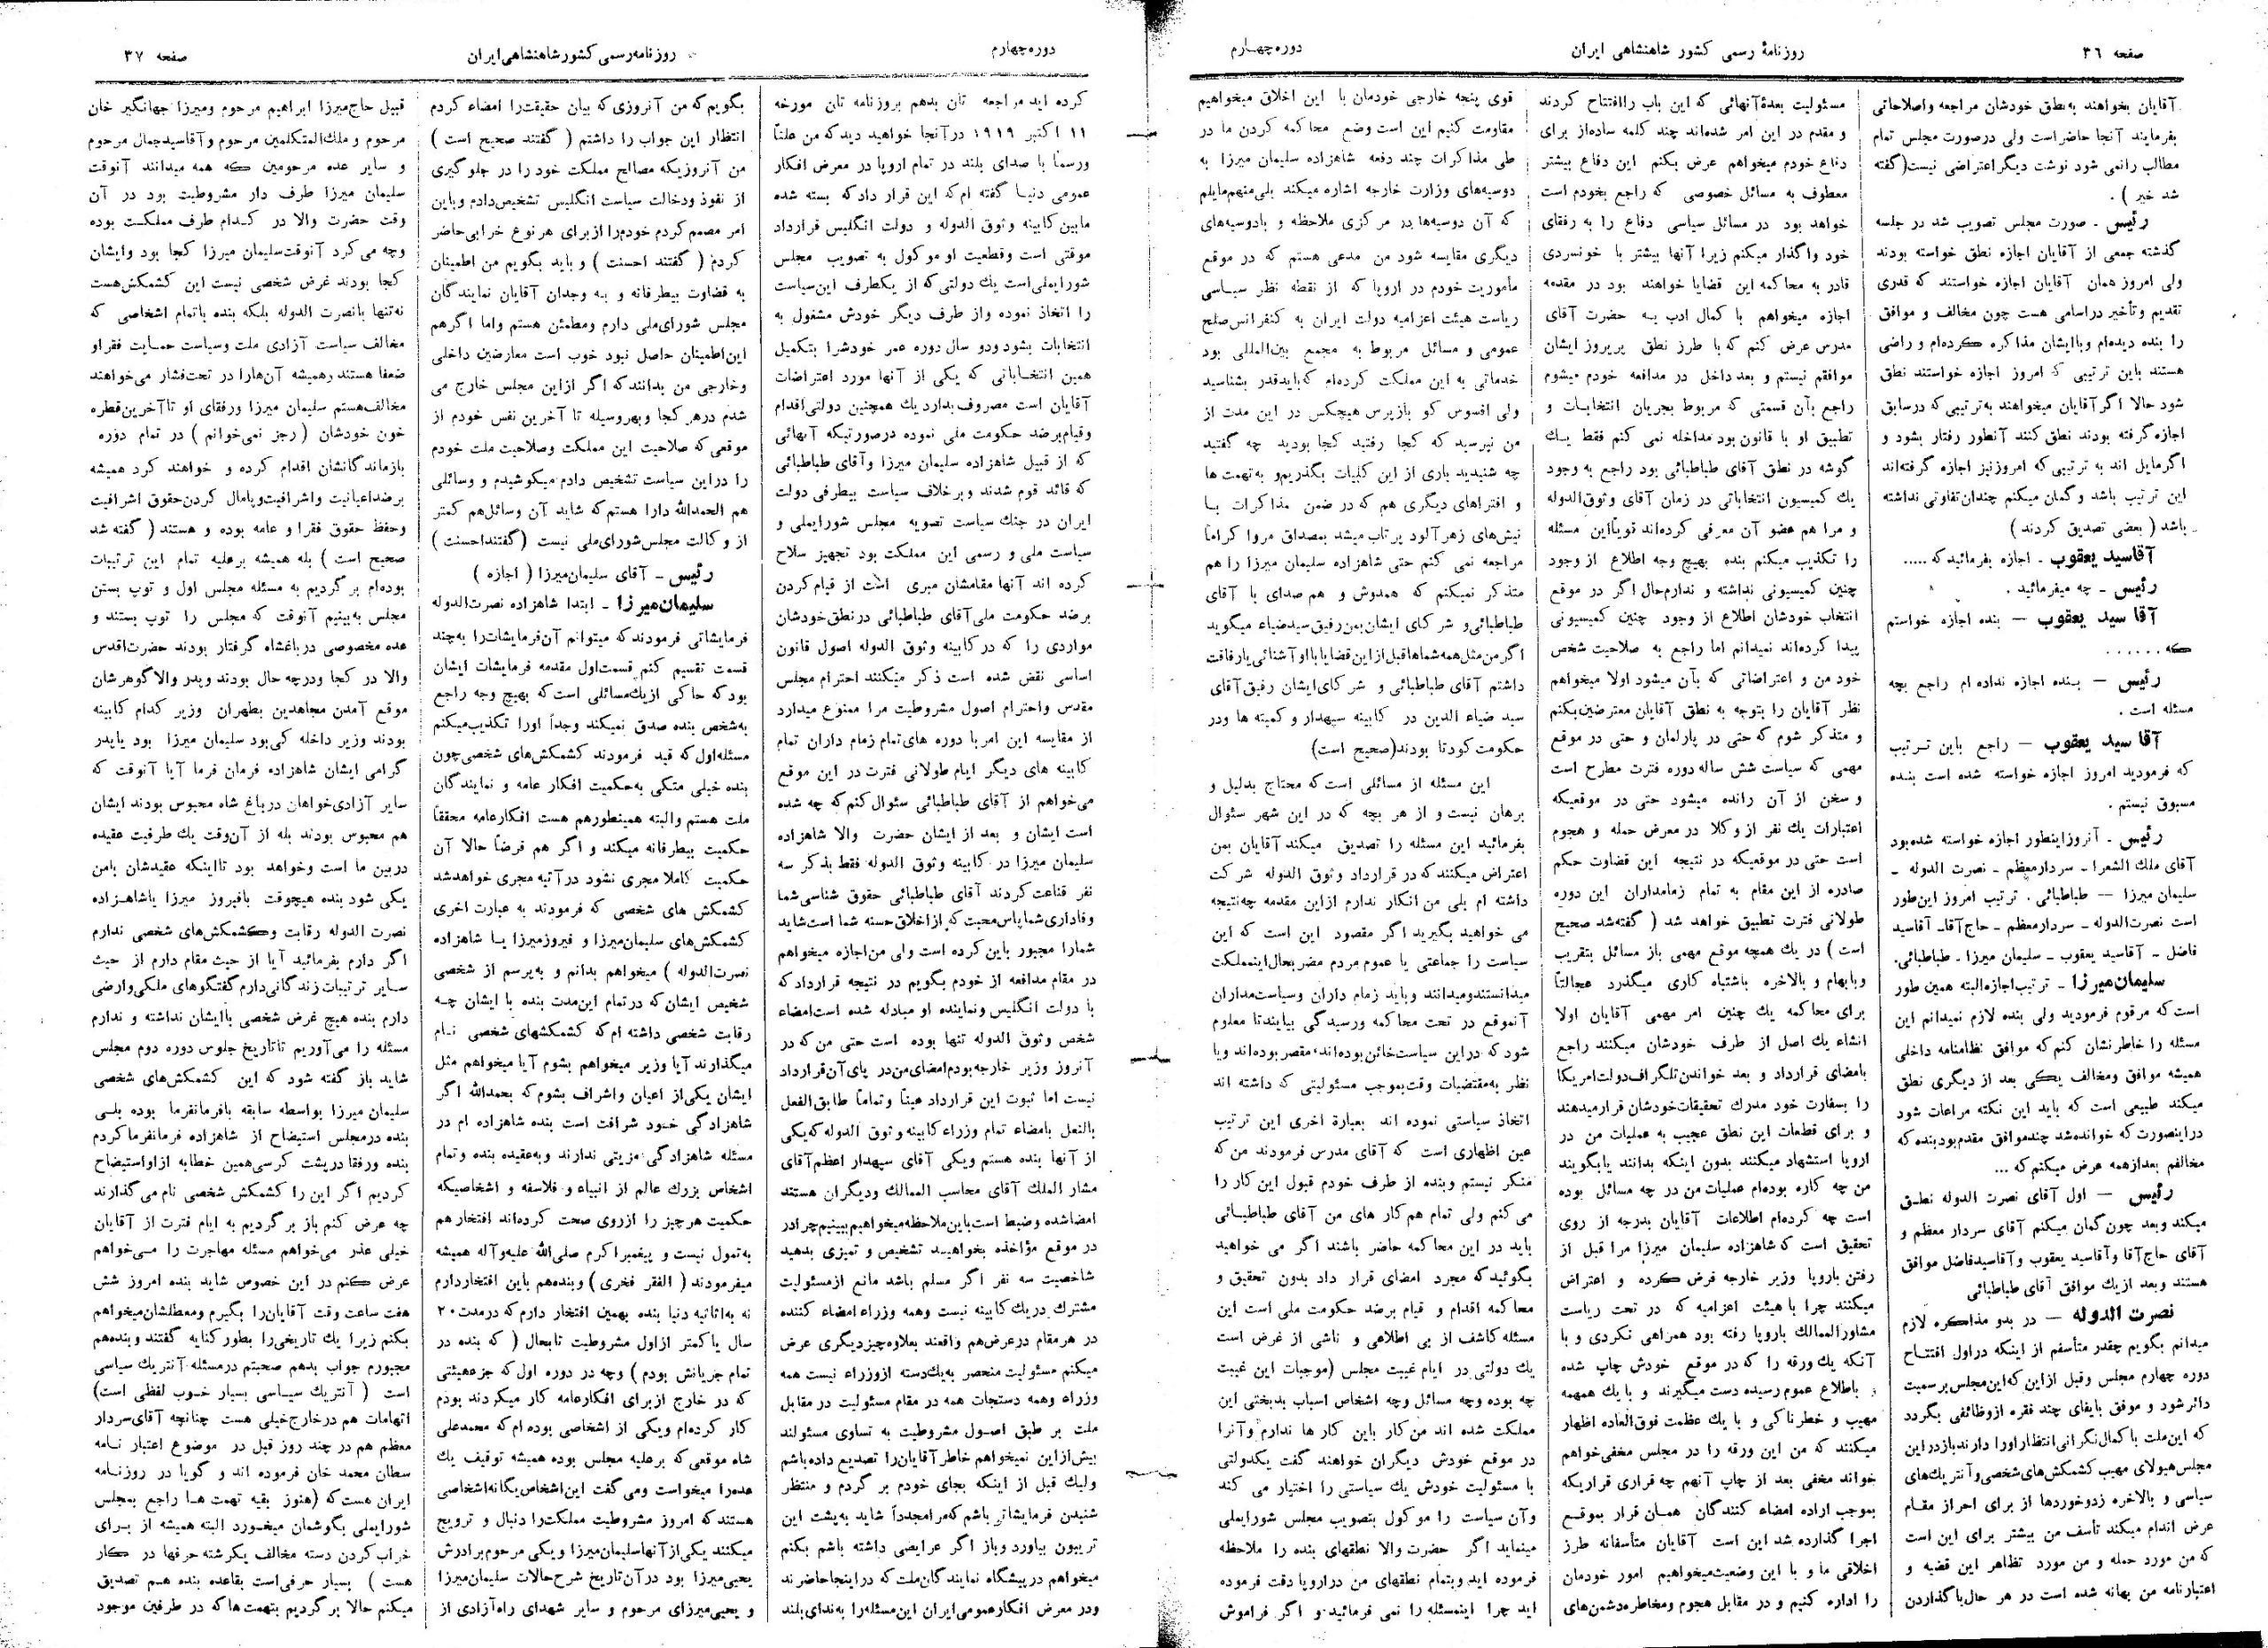 صفحه ۳۶
روزنامهٔ رسمی کشور شاهنشاهی ایران
دوره چهارم
آقایان بخواهند به‌نطق خودشان مراجعه واصلاحاتی
بفرمایند آنجا حاضراست ولی درصورت مجلس تمام
مطالب رانمی شود نوشت دیگراعتراضی نیست(گفته
شد خیر ) .
رئیس ـ صورت مجلس تصویب شد در جلسه
گذشته جمعی از آقایان اجازه نطق خواسته بودند
ولی امروز همان آقایان اجازه خواستند که قدری
تقدیم وتأخیر دراسامی هست چون مخالف و موافق
را بنده دیده‌ام وباایشان مذاکره کرده‌ام و راضی
هستند باین ترتیبی که امروز اجازه خواستند نطق
شود حالا اگرآقایان میخواهند به‌ترتیبی که درسابق
اجازه گرفته بودند نطق کنند آنطور رفتار بشود و
اگرمایل اند به ترتیبی که امروزنیز اجازه گرفته‌اند
این ترتیب باشد وگمان میکنم چندان‌تفاوتی نداشته
باشد ( بعضی تصدیق کردند )
آقاسید یعقوب ـ اجازه بفرمائید که .....
رئیس ـ چه میفرمائید .
آقا سید یعقوب — بنده اجازه خواستم
که ......
رئیس — بنده اجازه نداده ام راجع بچه
مسئله است .
آقا سید یعقوب — راجع باین ترتیب
که فرمودید امروز اجازه خواسته شده است بنده
مسبوق نیستم .
رئیس ـ آنروزاینطور اجازه خواسته شده‌بود
آقای ملك الشعرا ـ سردارمعظم ـ نصرت الدوله ـ
سلیمان میرزا — طباطبائی . ترتیب امروز این‌طور
است نصرت‌الدوله ـ سردارمعظم ـ حاج‌آقا ـ آقاسید
فاضل ـ آقاسید یعقوب ـ سلیمان میرزا ـ طباطبائی.
سلیمان‌میرزا ـ ترتیب‌اجازه‌البته همین طور
است‌که مرقوم فرمودید ولی بنده لازم نمیدانم این
مسئله را خاطرنشان کنم‌که موافق نظامنامه داخلی
همیشه موافق ومخالف یکی بعد از دیگری نطق
میکند طبیعی است که باید این نکته مراعات شود
دراینصورت‌که خوانده‌شد چندموافق مقدم‌بودبنده‌که
مخالفم بعدازهمه عرض میکنم‌که ...
رئیس — اول آقای نصرت الدوله نطق
میکند وبعد چون گمان میکنم آقای سردار معظم و
آقای حاج‌آقا وآقاسید یعقوب وآقاسیدفاضل موافق
هستند وبعد ازیك موافق آقای طباطبائی
نصرت الدوله — در بدو مذاکره لازم
میدانم بگویم چقدر متأسفم از اینکه دراول افتتاح
دوره چهارم مجلس وقبل ازاین‌که‌این‌مجلس برسمیت
دائرشود و موفق بایفای چند فقره ازوظائفی بگردد
که این‌ملت باکمال‌نگرانی‌انتظاراورا دارندبازدراین
مجلس‌هیولای مهیب کشمکش‌های شخصی‌وآنتریك‌های
سیاسی و بالاخره زدوخوردها از برای احراز مقام
عرض اندام میکند تأسف من بیشتر برای این است
که من مورد حمله و من مورد تظاهر این قضیه و
اعتبارنامه من بهانه شده است در هر حال‌باگذاردن
مسئولیت بعدهٔ‌آنهائی که این باب راافتتاح کردند
و مقدم در این امر شده‌اند چند کلمه ساده‌از برای
دفاع خودم میخواهم عرض بکنم این دفاع بیشتر
معطوف به مسائل خصوصی که راجع بخودم است
خواهد بود در مسائل سیاسی دفاع را به رفقای
خود واگذار میکنم زیرا آنها بیشتر با خونسردی
قادر به محاکمه این قضایا خواهند بود در مقدمه
اجازه میخواهم با کمال ادب به حضرت آقای
مدرس عرض کنم که‌با طرز نطق پریروز ایشان
موافقم نیستم و بعد داخل در مدافعه خودم میشوم
راجع بآن قسمتی که مربوط بجریان انتخابات و
تطبیق او با قانون بود مداخله نمی کنم فقط یك
گوشه در نطق آقای طباطبائی بود راجع به وجود
یك کمیسیون انتخاباتی در زمان آقای وثوق‌الدوله
و مرا هم عضو آن معرفی کرده‌اند قویاًاین مسئله
را تکذیب میکنم بنده بهیچ وجه اطلاع از وجود
چنین کمیسیونی نداشته و ندارم‌حال اگر در موقع
انتخاب خودشان اطلاع از وجود چنین کمیسیونی
پیدا کرده‌اند نمیدانم اما راجع به صلاحیت شخص
خود من و اعتراضاتی که بآن میشود اولا میخواهم
نظر آقایان را بتوجه به نطق آقایان معترضین‌بکنم
و متذکر شوم که حتی در پارلمان و حتی در موقع
مهمی که سیاست شش ساله دوره فترت مطرح است
و سخن از آن رانده میشود حتی در موقعیکه
اعتبارات یك نفر ازوکلا در معرض حمله و هجوم
است حتی در موقعیکه در نتیجه این قضاوت حکم
صادره از این مقام به تمام زمامداران این دوره
طولانی فترت تطبیق خواهد شد ( گفته‌شد صحیح
است ) در یك همچه موقع مهمی باز مسائل بتقریب
وبابهام و بالاخره باشتباه کاری میگذرد عجالتاً
برای محاکمه یك چنین امر مهمی آقایان اولا
انشاء یك اصل از طرف خودشان میکنند راجع
بامضای قرارداد و بعد خواندن‌تلگراف‌دولت‌امریکا
را بسفارت خود مدرك تحقیقات‌خودشان قرارمیدهند
و برای قطعات این نطق عجیب به عملیات من در
اروپا استشهاد میکنند بدون اینکه بدانند یابگویند
من چه کاره بوده‌ام عملیات من در چه مسائل بوده
است چه کرده‌ام اطلاعات آقایان بدرجه از روی
تحقیق است که‌شاهزاده سلیمان میرزا مرا قبل از
رفتن باروپا وزیر خارجه فرض کرده و اعتراض
میکنند چرا با هیئت اعزامیه که در تحت ریاست
مشاورالممالك باروپا رفته بود همراهی نکردی و با
آنکه یك ورقه را که در موقع خودش چاپ شده
باطلاع عموم رسیده دست میگیرند و بایك همهمه
مهیب و خطرناکی و با یك عظمت فوق‌العاده اظهار
میکنند که من این ورقه را در مجلس مخفی‌خواهم
خواند مخفی بعد از چاپ آنهم چه قراری قراریکه
بموجب اراده امضاء کنندگان همان قرار بموقع
اجرا گذارده شد این است آقایان متأسفانه طرز
اخلاقی ما و با این وضعیت‌میخواهیم امور خودمان
را اداره کنیم و در مقابل هجوم ومخاطره‌دشمن‌های
قوی پنجه خارجی خودمان با این اخلاق میخواهیم
مقاومت کنیم این است وضع محاکمه کردن ما در
طی مذاکرات چند دفعه شاهزاده سلیمان میرزا به
دوسیه‌های وزارت خارجه اشاره میکند بلی‌منهم‌مایلم
که آن دوسیه‌ها در مرکزی ملاحظه و بادوسیه‌های
دیگری مقایسه شود من مدعی هستم که در موقع
مأموریت خودم در اروپا که از نقطه نظر سیاسی
ریاست هیئت اعزامیه دولت ایران به کنفرانس‌صلح
عمومی و مسائل مربوط به مجمع بین‌المللی بود
خدماتی به این مملکت کرده‌ام که‌بایدقدر بشناسید
ولی افسوس کو بازپرس هیچکس در این مدت از
من نپرسید که کجا رفتید کجا بودید چه گفتید
چه شنیدید باری از این کلیات بگذریم‌و به‌تهمت ها
و افتراهای دیگری هم که در ضمن مذاکرات با
نیش‌های زهرآلود پرتاب میشد بمصداق مروا کراماً
مراجعه نمی کنم حتی شاهزاده سلیمان میرزا را هم
متذکر نمیکنم که همدوش و هم صدای با آقای
طباطبائی‌و شرکای ایشان‌بمن‌رفیق سیدضیاء میگوید
اگرمن‌مثل‌همه‌شماهاقبل‌ازاین‌قضایابااوآشنائی‌یارفاقت
داشتم آقای طباطبائی و شرکای‌ایشان رفیق‌آقای
سید ضیاء الدین در کابینه سپهدار و کمیته ها ودر
حکومت‌کودتا بودند(صحیح است)
این مسئله از مسائلی است‌که محتاج بدلیل و
برهان نیست و از هر بچه که در این شهر سئوال
بفرمائید این مسئله را تصدیق میکند آقایان بمن
اعتراض میکنندکه در قرارداد وثوق الدوله شرکت
داشته ام بلی من انکار ندارم ازاین مقدمه چه‌نتیجه
می خواهید بگیرید اگر مقصود این است که این
سیاست را جماعتی یا عموم مردم مضربحال‌اینمملکت
میدانستندومیدانند وباید زمام داران وسیاست‌مداران
آنموقع در تحت محاکمه ورسیدگی بیایندتا معلوم
شود که دراین سیاست‌خائن‌بوده‌اند،مقصر بوده‌اند ویا
نظر به‌مقتضیات وقت‌بموجب مسئولیتی که داشته اند
اتخاذ سیاستی نموده اند بعبارة اخری این ترتیب
عین اظهاری است که آقای مدرس فرمودند من‌که
منکر نیستم وبنده از طرف خودم قبول این‌کار را
می‌کنم ولی تمام هم‌کار های من آقای طباطبائی
باید در این محاکمه حاضر باشند اگر می خواهید
بگوئیدکه مجرد امضای قرار داد بدون تحقیق و
محاکمه اقدام و قیام برضد حکومت ملی است این
مسئله کاشف از بی اطلاعی و ناشی از غرض است
یك دولتی در ایام غیبت مجلس (موجبات این غیبت
چه بوده وچه مسائل وچه اشخاص اسباب بدبختی این
مملکت شده اند من‌کار باین کار ها ندارم وآنرا
در موقع خودش دیگران خواهند گفت یکدولتی
با مسئولیت خودش یك سیاستی را اختیار می کند
وآن سیاست را موکول بتصویب مجلس شورایملی
مینماید اگر حضرت والا نطقهای بنده را ملاحظه
فرموده اید وبتمام نطقهای من دراروپا دقت فرموده
اید چرا اینمسئله را نمی فرمائید و اگر فراموش
دوره چهارم
روزنامه رسمی کشورشاهنشاهی ایران
صفحه ۳۷
کرده اید مراجعه تان بدهم بروزنامه تان مورخه
۱۱ اکتبر ۱۹۱۹ درآنجا خواهید دیدکه من علناً
ورسماً با صدای بلند در تمام اروپا در معرض افکار
عمومی دنیا گفته ام‌که این قرار دادکه بسته شده
مابین کابینه وثوق الدوله و دولت انگلیس قرارداد
موقتی است وقطعیت او موکول به تصویب مجلس
شورایملی‌است یك دولتی‌که از یکطرف این‌سیاست
را اتخاذ نموده واز طرف دیگر خودش مشغول به
انتخابات بشود ودو سال دوره عمر خودشرا بتکمیل
همین انتخاباتی که یکی از آنها مورد اعتراضات
آقایان است مصروف‌بدارد یك همچنین دولتی‌اقدام
وقیام‌برضد حکومت ملی نموده درصورتیکه آنهائی
که از قبیل شاهزاده سلیمان میرزا وآقای طباطبائی
که قائد قوم شدند وبرخلاف سیاست بیطرفی دولت
ایران در جنك سیاست تصویه مجلس شورایملی و
سیاست ملی و رسمی این مملکت بود تجهیز سلاح
کرده اند آنها مقامشان مبری است از قیام کردن
برضد حکومت ملی‌آقای طباطبائی درنطق‌خودشان
مواردی را که درکابینه وثوق الدوله اصول قانون
اساسی نقض شده است ذکر میکنند احترام مجلس
مقدس واحترام اصول مشروطیت مرا ممنوع میدارد
از مقایسه این امربا دوره های‌تمام زمام داران تمام
کابینه های دیگر ایام طولانی فترت در این موقع
می‌خواهم از آقای طباطبائی سئوال‌کنم‌که چه شده
است ایشان و بعد از ایشان حضرت والا شاهزاده
سلیمان میرزا در کابینه وثوق الدوله فقط بذکر سه
نفر قناعت‌کردند آقای طباطبائی حقوق شناسی‌شما
وفاداری‌شماپاس‌محبت‌که‌ازاخلاق‌حسنه شما است‌شاید
شمارا مجبور باین‌کرده است ولی من‌اجازه میخواهم
در مقام مدافعه از خودم بگویم در نتیجه قراردادکه
با دولت انگلیس ونماینده او مبادله شده است‌امضاء
شخص وثوق الدوله تنها بوده است حتی من‌که در
آنروز وزیر خارجه‌بودم‌امضای‌من‌در پای‌آن‌قرارداد
نیست اما ثبوت این قرارداد عیناً وتماماً طابق‌الفعل
بالنعل بامضاء تمام وزراءکابینه وثوق الدوله‌که‌یکی
از آنها بنده هستم ویکی آقای سپهدار اعظم‌آقای
مشار الملك آقای محاسب الممالك ودیگران هستند
امضاشده وضبط است‌باین‌ملاحظه‌میخواهیم‌ببینیم‌چرادر
در موقع مؤاخذه بخواهید تشخیص و تمیزی بدهید
شاخصیت سه نفر اگر مسلم باشد مانع ازمسئولیت
مشترك دریك‌کابینه نیست وهمه وزراء‌امضاء کننده
در هرمقام درعرض‌هم واقعند بعلاوه‌چیزدیگری عرض
میکنم مسئولیت منحصر به‌یك‌دسته ازوزراء نیست همه
وزراء وهمه دستجات همه در مقام مسئولیت در مقابل
ملت بر طبق اصول مشروطیت به تساوی مسئولند
بیش‌ازاین نمیخواهم خاطرآقایان‌را تصدیع داده‌باشم
ولیك قبل از اینکه بجای خودم بر گردم و منتظر
شنیدن فرمایشاتی باشم‌که‌مرامجدداً شاید به‌پشت این
تریبون بیاورد وباز اگر عرایضی داشته باشم بکنم
میخواهم درپیشگاه نمایندگان‌ملت‌که دراینجاحاضرند
ودر معرض افکارعمومی‌ایران این‌مسئله‌را به‌ندای‌بلند
بگویم‌که من آنروزی‌که بیان حقیقت‌را امضاء کردم
انتظار این جواب را داشتم ( گفتند صحیح است )
من آنروزیکه مصالح مملکت خود را در جلوگیری
از نفوذ ودخالت سیاست انگلیس تشخیص‌دادم وباین
امر مصمم کردم خودم‌را ازبرای هرنوع خرابی‌حاضر
کردم ( گفتند احسنت ) و باید بگویم من اطمینان
به قضاوت بیطرفانه و به وجدان آقایان نمایندگان
مجلس شورای‌ملی دارم ومطمئن هستم واما اگرهم
این‌اطمینان حاصل نبود خوب است معارضین داخلی
وخارجی من بدانندکه اگر ازاین مجلس خارج می
شدم درهرکجا وبهروسیله تا آخرین نفس خودم از
موقعی‌که صلاحیت این مملکت وصلاحیت ملت خودم
را دراین سیاست تشخیص دادم میکوشیدم و وسائلی
هم الحمدالله دارا هستم‌که شاید آن وسائل‌هم کمتر
از وکالت مجلس‌شورای‌ملی نیست (گفتنداحسنت )
رئیس ـ آقای سلیمان‌میرزا ( اجازه )
سلیمان‌میرزا ـ ابتدا شاهزاده نصرت‌الدوله
فرمایشاتی فرمودندکه میتوانم آن‌فرمایشات‌را به‌چند
قسمت تقسیم کنم قسمت‌اول مقدمه فرمایشات ایشان
بودکه حاکی ازیك‌مسائلی است‌که بهیچ وجه راجع
به‌شخص بنده صدق نمیکند وجداً اورا تکذیب‌میکنم
مسئله‌اول‌که قید فرمودند کشمکش‌های شخصی‌چون
بنده خیلی متکی به‌حکمیت افکار عامه و نمایندگان
ملت هستم والبته همینطورهم هست افکارعامه محققاً
حکمیت بیطرفانه میکند و اگر هم فرضاً حالا آن
حکمیت کاملا مجری نشود درآتیه مجری خواهدشد
کشمکش های شخصی که فرمودند به عبارت اخری
کشمکش‌های سلیمان‌میرزا و فیروزمیرزا یا شاهزاده
نصرت‌الدوله ) میخواهم بدانم و به‌پرسم از شخصی
شخیص ایشان‌که درتمام این‌مدت بنده با ایشان چه
رقابت شخصی داشته ام‌که کشمکشهای شخصی نام
میگذارند آیا وزیر میخواهم بشوم آیا میخواهم مثل
ایشان یکی‌از اعیان واشراف بشوم‌که بحمدالله اگر
شاهزادگی خود شرافت است بنده شاهزاده ام در
مسئله شاهزادگی مزیتی ندارند وبه‌عقیده بنده وتمام
اشخاص بزرك عالم از انبیاء و فلاسفه و اشخاصیکه
حکمیت هرچیز را ازروی صحت کرده‌اند افتخارهم
به‌تمول نیست و پیغمبراکرم صلی‌الله علیه‌وآله همیشه
میفرمودند ( الفقر فخری ) وبنده‌هم باین افتخاردارم
نه به‌اثاثیه دنیا بنده بهمین افتخار دارم که درمدت۲۰
سال یاکمتر ازاول مشروطیت تابحال ( که بنده در
تمام جزیانش بودم ) وچه در دوره اول‌که جزءهیئتی
که در خارج ازبرای افکارعامه کار میکردند بودم
کار کرده‌ام ویکی از اشخاصی بوده ام‌که محمدعلی
شاه موقعی‌که برعلیه مجلس بوده همیشه توقیف یك
عده‌را میخواست ومی‌گفت این‌اشخاص‌یگانه‌اشخاصی
هستندکه امروز مشروطیت مملکت‌را دنبال و ترویج
میکنند یکی‌ازآنهاسلیمان‌میرزا ویکی مرحوم‌برادرش
یحیی‌میرزا بود درآن‌تاریخ شرح‌حالات سلیمان‌میرزا
و یحیی‌میرزای مرحوم و سایر شهدای راه‌آزادی از
قبیل حاج‌میرزا ابراهیم مرحوم ومیرزا جهانگیر خان
مرحوم و ملك‌المتکلمین مرحوم وآقاسیدجمال مرحوم
و سایر عده مرحومین که همه میدانند آنوقت
سلیمان میرزا طرف دار مشروطیت بود در آن
وقت حضرت والا در کدام طرف مملکت بوده
وچه می‌کرد آنوقت‌سلیمان میرزا کجا بود وایشان
کجا بودند غرض شخصی نیست این کشمکش‌هست
نه‌تنها بانصرت الدوله بلکه بنده باتمام اشخاصی که
مخالف سیاست آزادی ملت وسیاست حمایت فقراو
ضعفا هستند وهمیشه آن‌هارا در تحت‌فشار می‌خواهند
مخالف‌هستم سلیمان میرزا ورفقای او تاآخرین‌قطره
خون خودشان ( رجز نمی‌خوانم ) در تمام دوره
بازماندگانشان اقدام کرده و خواهند کرد همیشه
برضداعیانیت واشرافیت‌وپامال کردن‌حقوق اشرافیت
وحفظ حقوق فقرا و عامه بوده و هستند ( گفته شد
صحیح است ) بله همیشه برعلیه تمام این ترتیبات
بوده‌ام برگردیم به مسئله مجلس اول و توپ بستن
مجلس به‌بینیم آنوقت که مجلس را توپ بستند و
عده مخصوصی درباغشاه گرفتار بودند حضرت‌اقدس
والا در کجا ودرچه حال بودند وپدر والاگوهرشان
موقع آمدن مجاهدین بطهران وزیر کدام کابینه
بودند وزیر داخله کی‌بود سلیمان میرزا بود یاپدر
گرامی ایشان شاهزاده فرمان فرما آیا آنوقت که
سایر آزادی‌خواهان درباغ شاه محبوس بودند ایشان
هم محبوس بودند بله از آن‌وقت یك طرفیت عقیده
دربین ما است وخواهد بود تااینکه عقیدشان بامن
یکی شود بنده هیچوقت بافیروز میرزا یاشاهزاده
نصرت الدوله رقابت وکشمکش‌های شخصی ندارم
اگر دارم بفرمائید آیا از حیث مقام دارم از حیث
سایر ترتیبات زندگانی‌دارم گفتگوهای ملکی‌وارضی
دارم بنده هیچ غرض شخصی باایشان نداشته و ندارم
مسئله را می‌آوریم تاتاریخ جلوس دوره دوم مجلس
شاید باز گفته شود که این کشمکش‌های شخصی
سلیمان میرزا بواسطه سابقه بافرمانفرما بوده بلی
بنده درمجلس استیضاح از شاهزاده فرمانفرماکردم
بنده ورفقا درپشت کرسی‌همین خطابه ازاواستیضاح
کردیم اگر این را کشمکش شخصی نام می‌گذارند
چه عرض کنم باز برگردیم به ایام فترت از آقایان
خیلی عذر می‌خواهم مسئله مهاجرت را می‌خواهم
عرض کنم در این خصوص شاید بنده امروز شش
هفت ساعت وقت آقایان‌را بگیرم ومعطلشان‌میخواهم
بکنم زیرا یك تاریخی‌را بطورکنایه گفتند وبنده‌هم
مجبورم جواب بدهم صحبتم درمسئله آنتریك سیاسی
است ( آنتریك سیاسی بسیار خوب لفظی است)
اتهامات هم درخارج‌خیلی هست چنانچه آقای‌سردار
معظم هم در چند روز قبل در موضوع اعتبار نامه
سطان محمد خان فرموده اند و گویا در روزنامه
ایران هست‌که (هنوز بقیه تهمت ها راجع بمجلس
شورایملی بگوشمان میخورد البته همیشه از برای
خراب‌کردن دسته مخالف یکرشته حرفها در کار
هست ) بسیار حرفی‌است بقاعده بنده هم تصدیق
میکنم حالا برگردیم بتهمت هاکه در طرفین موجود